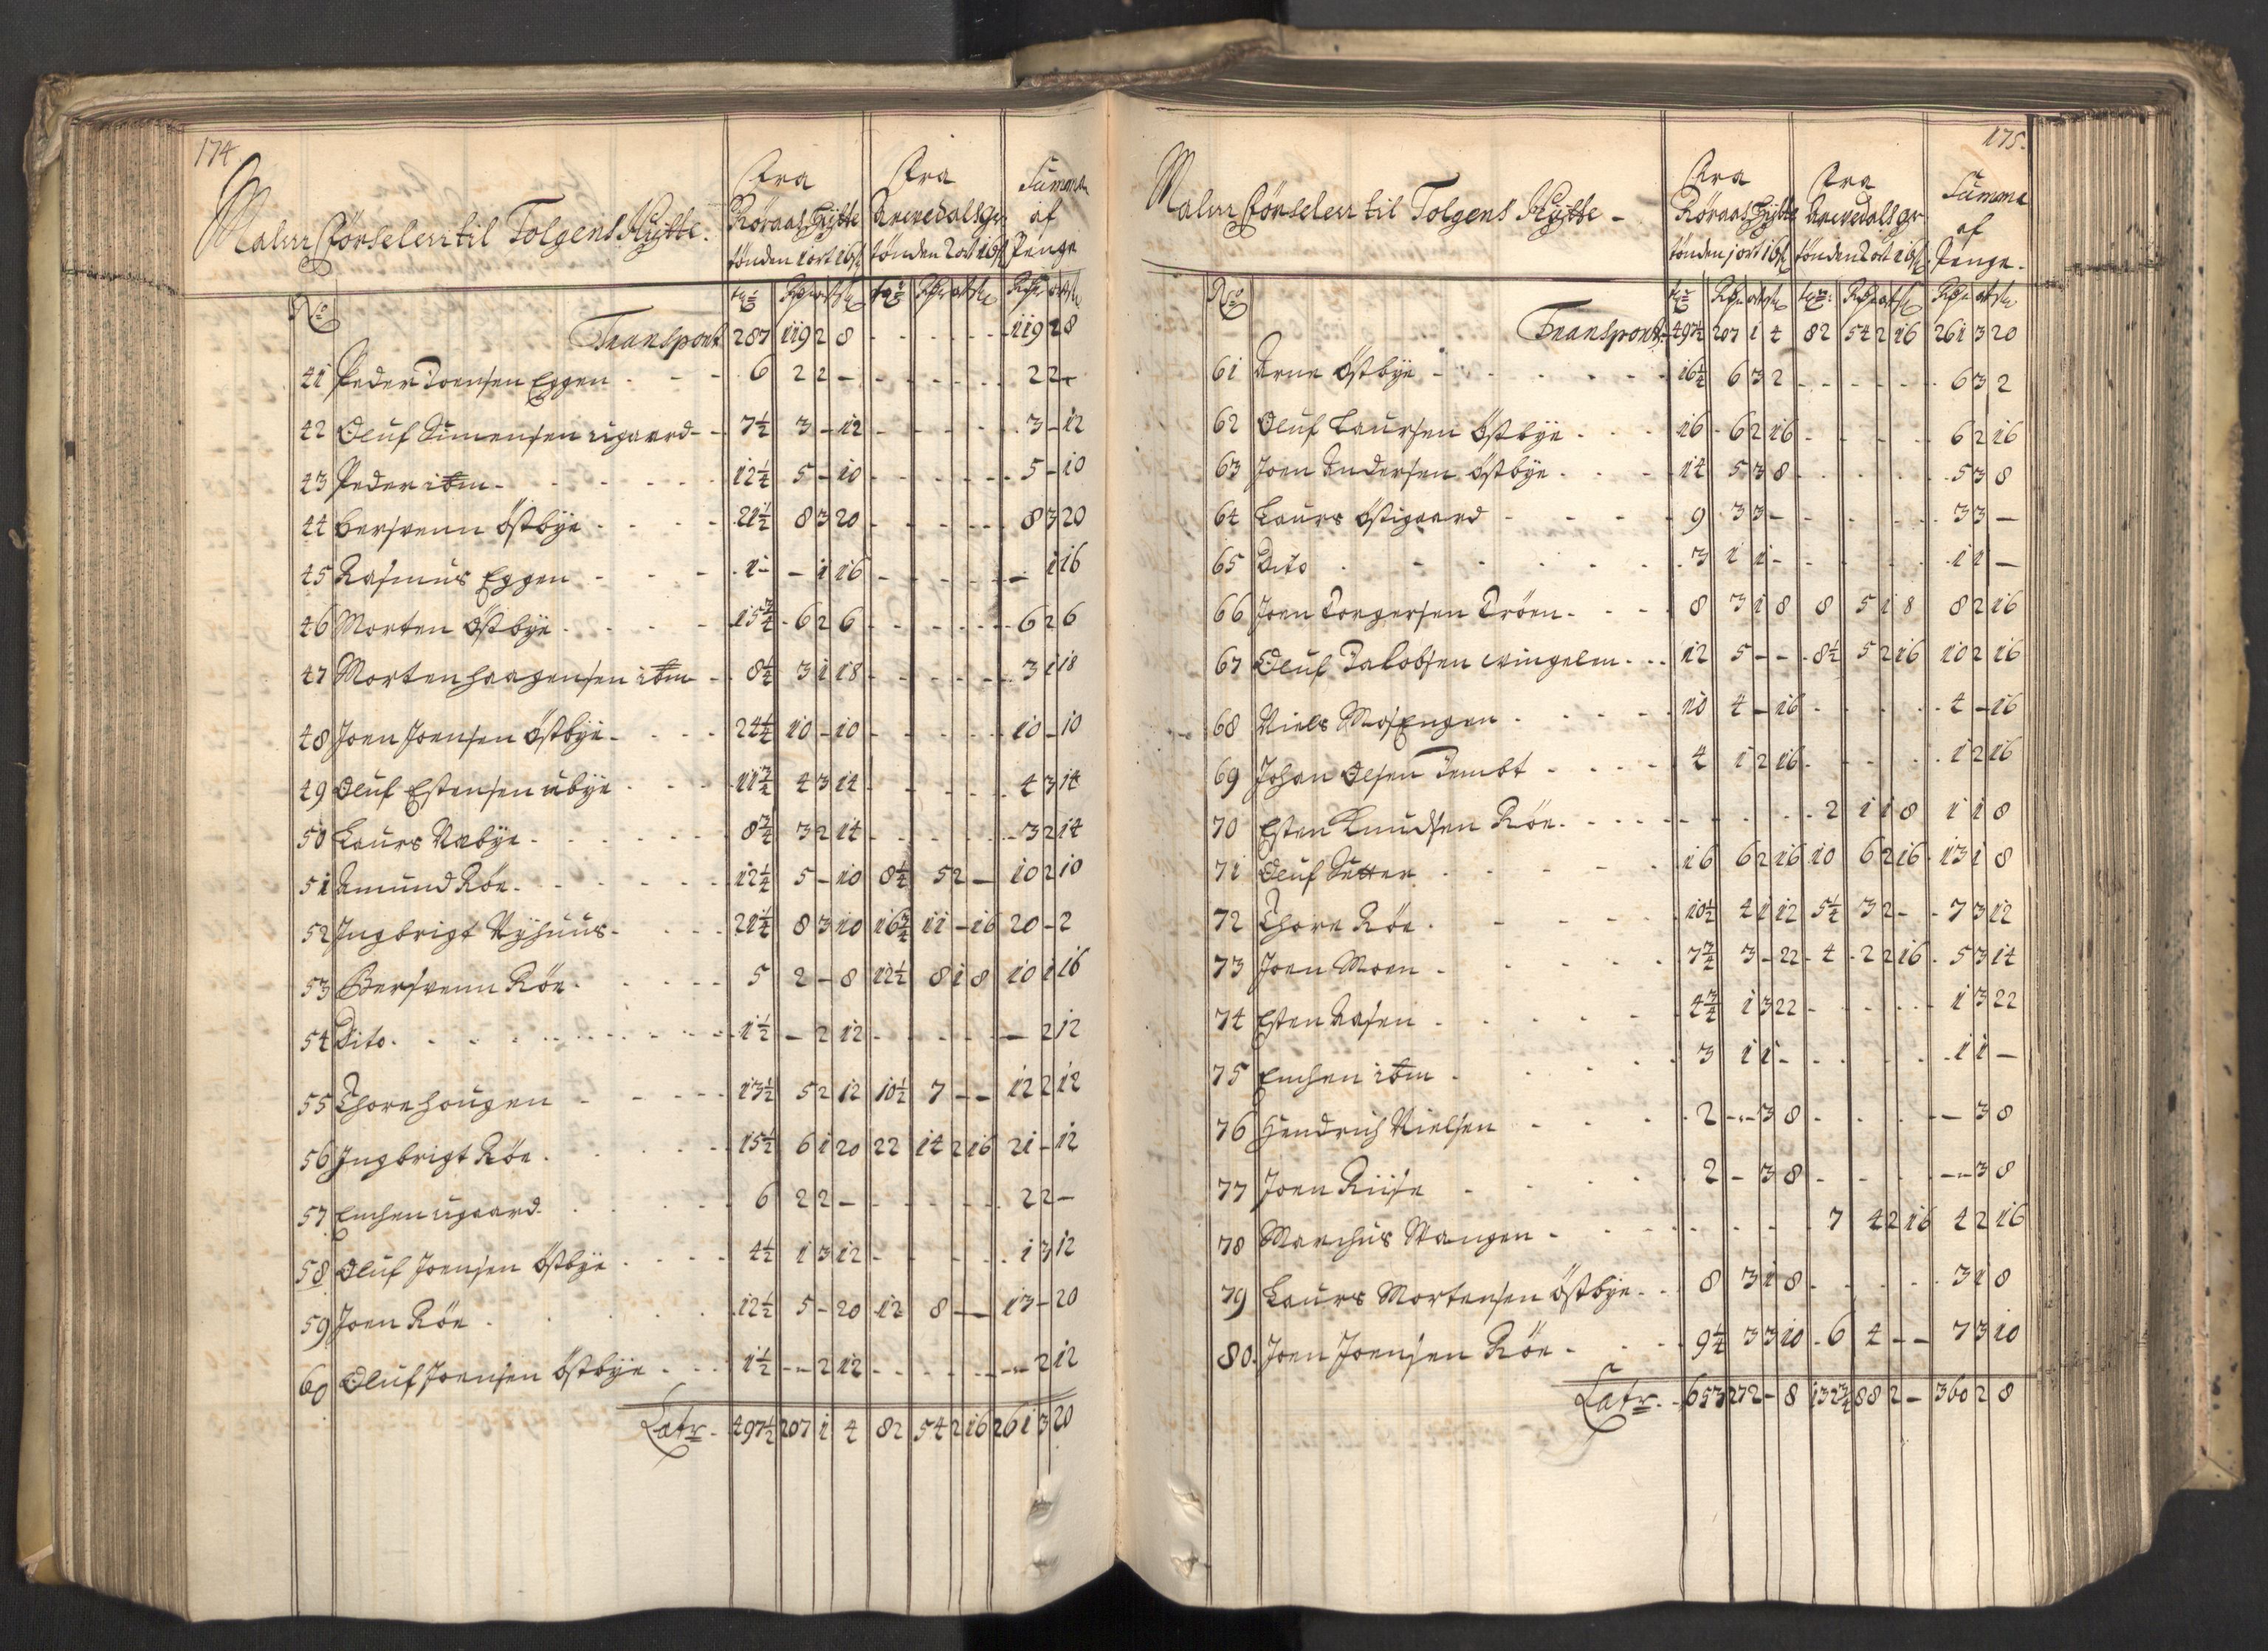 174.
Malm Förselen til Tolgens Hytte.
Fra Röraas Hytte tönden 1 ort 16 sk
Fra Arvedals gr tönden 2 ort 16 sk
Summa af Penge
No
Transport 287 119 2 8 - - - - 119 2 8
41 Peder Joensen Eggen - 6 2 2 - - - - - 2 2 -
42 Oluf Simensen ugaard - 7½ 3 - 12 - - - - 3 - 12
43 Peder ibm - 12¼ 5 - 10 - - - - 5 - 10
44 Bersvenn Östbye - 21½ 8 3 20 - - - - 8 3 20
45 Rasmus Eggen - 1 - 1 16 - - - - - 1 16
46 Morten Östbye - 15¾ 6 2 6 - - - - 6 2 6
47 Morten Haagensen ibm - 8¼ 3 1 18 - - - - 3 1 18
48 Joen Joensen Östbye - 24¼ 10 - 10 - - - - 10 - 10
49 Oluf Estensen ubye - 11¾ 4 3 14 - - - - 4 3 14
50 Laurs Nabye - 8¾ 3 2 14 - - - - 3 2 14
51 Amund Röe - 12¼ 5 - 10 8¼ 5 2 - 10 2 10
52 Ingbrigt Nyhuus - 21¼ 8 3 10 16¾ 11 - 16 20 - 2
53 Bersvenn Röe - 5 2 - 8 12½ 8 1 8 10 1 16
54 Dito - 1½ - 2 12 - - - - - 2 12
55 Thore Hougen - 13½ 5 2 12 10½ 7 - - 12 2 12
56 Ingbrigt Röe - 15½ 6 1 20 22 14 2 16 21 - 12
57 Enchen ugaard - 6 2 2 - - - - - 2 2 -
58 Oluf Joensen Östbye - 4½ 1 3 12 - - - - 1 3 12
59 Joen Röe - 12½ 5 - 20 12 8 - - 13 - 20
60 Oluf Joensen Östbye - 1½ - 2 12 - - - - - 2 12
Latr. 497½ 207 1 4 82 54 2 16 261 3 20
175.
Malm Förselen til Tolgens Hytte -
Fra Röraas Hytte tönden 1 ort 16 sk
Fra Arvedals gr tönden 2 ort 16 sk
Summa af Penge -
No
Transport 497½ 207 1 4 82 54 2 16 261 3 20
61 Arne Östbye - 16¼ 6 3 2 - - - - 6 3 2
62 Oluf Laursen Östbye - 16 6 2 16 - - - - 6 2 16
63 Joen Andersen Östbye - 14 5 3 8 - - - - 5 3 8
64 Laurs Östigaard - 9 3 3 - - - - - 3 3 -
65 Dito - 3 1 1 - - - - - 1 1 -
66 Joen Torgersen Tröen - 8 3 1 8 8 5 1 8 8 2 16
67 Oluf Jakobsen Vingelen - 12 5 - - 8½ 5 2 16 10 2 16
68 Niels MosEngen - 10 4 - 16 - - - - 4 - 16
69 Johan Olsen Tembt - 4 1 2 16 - - - - 1 2 16
70 Esten Knudsen Röe - - - - 2 1 1 8 1 1 8
71 Oluf Sætter - 16 6 2 16 10 6 2 16 13 1 8
72 Thore Röe - 10½ 4 1 12 5¼ 3 2 - 7 3 12
73 Joen Moen - 7¾ 3 - 22 4 2 2 16 5 3 14
74 Esten Aasen - 4¾ 1 3 22 - - - - 1 3 22
75 Enchen ibm - 3 1 1 - - - - - 1 1 -
76 Hendrich Nielsen - 2 - 3 8 - - - - - 3 8
77 Joen Riise - 2 - 3 8 - - - - - 3 8
78 Marchus Vangen - - - - 7 4 2 16 4 2 16
79 Laurs Mortensen Östbye - 8 3 1 8 - - - - 3 1 8
80 Joen Joensen Röe - 9¼ 3 3 10 6 4 - - 7 3 10
Latr. 653 272 - 8 132¾ 88 2 - 360 2 8